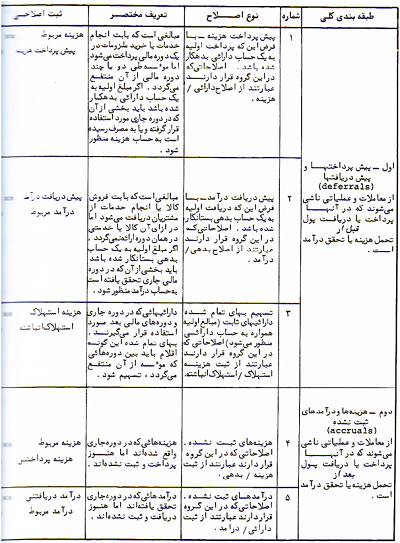 طبقه بندی کلی
شماره
نوع اصلاح
تعریف مختصر
ثبت اصلاحی
اول - پیش پرداختها و
پیش دریافتها
(deferrals)
از معاملات و عملیاتی ناشی
میشوند که در آنها
پرداخت یا دریافت پول
قبل از
تحمل هزینه یا تحقق درآمد
است.
۱
پیش پرداخت هزینه - با
فرض این که پرداخت اولیه
به یک حساب دارائی بدهکار
شده باشد. اصلاحاتی که
در این گروه قرار دارند
عبارتند از اصلاح دارائی/
هزینه.
مبالغی است که بابت انجام
خدمات یا خرید ملزومات در
یک دوره مالی پرداخت میشود
اما مؤسسه طی دو یا چند
دوره مالی از آن منتفع
میگردد. اگر مبلغ اولیه به
یک حساب دارائی بدهکار
شده باشد باید بخشی از آن
که در دوره جاری مورد استفاده
قرار گرفته و یا به مصرف رسیده
است به حساب هزینه منظور
شود.
هزینه مربوط
پیش پرداخت هزینه
۲
پیش دریافت درآمد - با
فرض این که دریافت اولیه
به یک حساب بدهی بستانکار
شده باشد. اصلاحاتی که
در این گروه قرار دارند
عبارتند از اصلاح بدهی/
درآمد.
مبالغی است که بابت فروش
کالا یا انجام خدمات از
مشتریان دریافت میشود اما
در ازای آن کالا یا خدمتی
در همان دوره ارائه نمیگردد.
اگر مبلغ اولیه به یک حساب
بدهی بستانکار شده باشد
باید بخشی از آن که در دوره
مالی جاری تحقق یافته است
به حساب درآمد منظور شود.
پیش دریافت درآمد
درآمد مربوط
۳
تسهیم بهای تمام شده
دارائیهای ثابت (مبالغ اولیه
همواره به حساب دارائی
منظور میشود) اصلاحاتی که
در این گروه قرار دارند
عبارتند از ثبت هزینه
استهلاک/استهلاک انباشته.
دارائیهائی که در دوره جاری
و دوره‌های مالی بعد مورد
استفاده قرار میگیرند.
بهای تمام شده این گونه
اقلام باید بین دوره‌هائی
که مؤسسه از آن منتفع
میگردد، تسهیم شود.
هزینه استهلاک
استهلاک انباشته
دوم - هزینه‌ها و درآمدهای
ثبت نشده
(accruals)
از معاملات و عملیاتی ناشی
میشوند که در آنها
پرداخت یا دریافت پول
بعد از
تحمل هزینه یا تحقق درآمد
است.
۴
هزینه‌های ثبت نشده.
اصلاحاتی که در این گروه
قرار دارند عبارتند از ثبت
هزینه / بدهی.
هزینه‌هائی که در دوره جاری
واقع شده‌اند اما هنوز
پرداخت و ثبت نشده‌اند.
هزینه مربوط
هزینه پرداختنی
۵
درآمدهای ثبت نشده.
اصلاحاتی که در این گروه
قرار دارند عبارتند از ثبت
دارائی / درآمد.
درآمدهائی که در دوره جاری
تحقق یافته‌اند اما هنوز
دریافت و ثبت نشده‌اند.
درآمد دریافتنی
درآمد مربوط